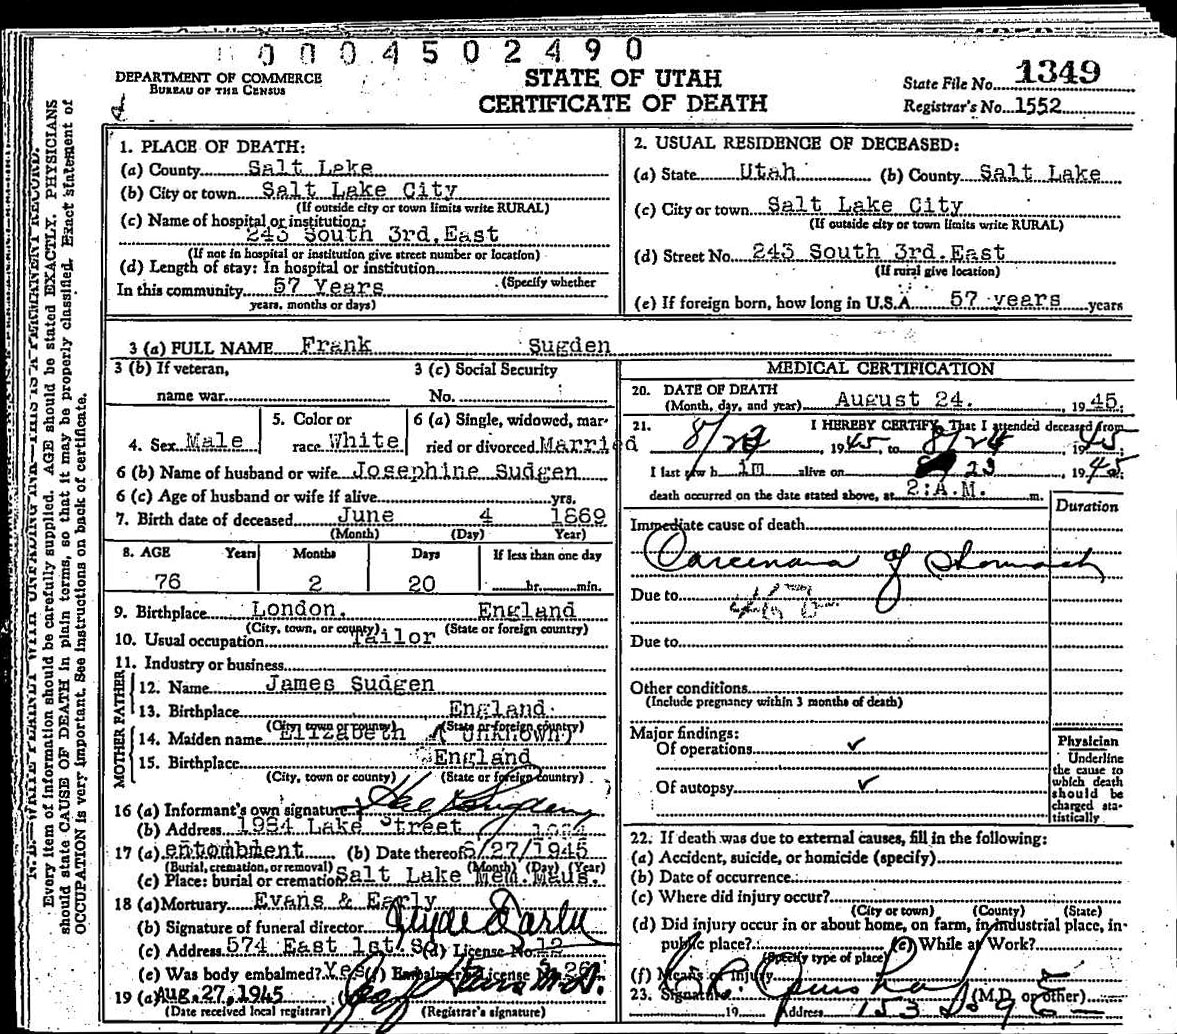 0 0 0 4 5 0 2 4 9 0
DEPARTMENT OF COMMERCE
BUREAU OF THE CENSUS
STATE OF UTAH
CERTIFICATE OF DEATH
State File No. 1349
Registrar's No. 1552
1. PLACE OF DEATH:
(a) County Salt Lake
(b) City or town Salt Lake City
(If outside city or town limits write RURAL)
(c) Name of hospital or institution:
243 South 3rd. East
(If not in hospital or institution give street number or location)
(d) Length of stay: In hospital or institution
(Specify whether
In this community 57 Years
years, months or days)
2. USUAL RESIDENCE OF DECEASED:
(a) State Utah (b) County Salt Lake
(c) City or town Salt Lake City
(If outside city or town limits write RURAL)
(d) Street No. 243 South 3rd. East
(If rural give location)
(e) If foreign born, how long in U.S.A. 57 years years
3 (a) FULL NAME Frank Sugden
3 (b) If veteran,
name war
3 (c) Social Security
No.
4. Sex Male
5. Color or
race White
6 (a) Single, widowed, mar-
ried or divorced Married
6 (b) Name of husband or wife Josephine Sudgen
6 (c) Age of husband or wife if alive yrs.
7. Birth date of deceased June 4 1869
(Month) (Day) Year)
8. AGE Years Months Days If less than one day
76 2 20 hr. min.
9. Birthplace London. England
(City, town, or county) (State or foreign country)
10. Usual occupation Tailor
11. Industry or business
FATHER
12. Name James Sudgen
13. Birthplace England
(City, town or county) (State or foreign country)
MOTHER
14. Maiden name Elizabeth (Unknown)
15. Birthplace England
(City, town or county) (State or foreign country)
16 (a) Informant's own signature Sugden
(b) Address 1984 Lake Street
17 (a) entombment (b) Date thereof 8/27/1945
(Burial, cremation, or removal) (Month) (Day) (Year)
(c) Place: burial or cremation Salt Lake Mem. Maus.
18 (a) Mortuary Evans & Early
(b) Signature of funeral director Clyde D Early
(c) Address 574 East 1st So (d) License No. 12
(e) Was body embalmed? Yes (f) Embalmer's License No. 26
19 (a) Aug. 27, 1945
(Date received local registrar) (Registrar's signature)
MEDICAL CERTIFICATION
20. DATE OF DEATH
(Month, day, and year) August 24. , 1945.
21. I HEREBY CERTIFY, That I attended deceased from
1945, to 8/24 1945
I last saw h im alive on 23 , 1945
death occurred on the date stated above, at 2:A.M. m.
Duration
Immediate cause of death
Carcinoma of Stomach
Due to
Due to
Other conditions
(Include pregnancy within 3 months of death)
Major findings:
Of operations ✓
Of autopsy ✓
Physician
Underline
the cause to
which death
should be
charged sta-
tistically
22. If death was due to external causes, fill in the following:
(a) Accident, suicide, or homicide (specify)
(b) Date of occurrence
(c) Where did injury occur?
(City or town) (County) (State)
(d) Did injury occur in or about home, on farm, in industrial place, in-
public place? (e) While at Work?
(Specify type of place)
(f) Means of injury
23. Signature (M.D. or other)
19 Address
Every item of information should be carefully supplied. AGE should be stated EXACTLY. PHYSICIANS
should state CAUSE OF DEATH in plain terms, so that it may be properly classified. Exact statement of
OCCUPATION is very important. See instructions on back of certificate.